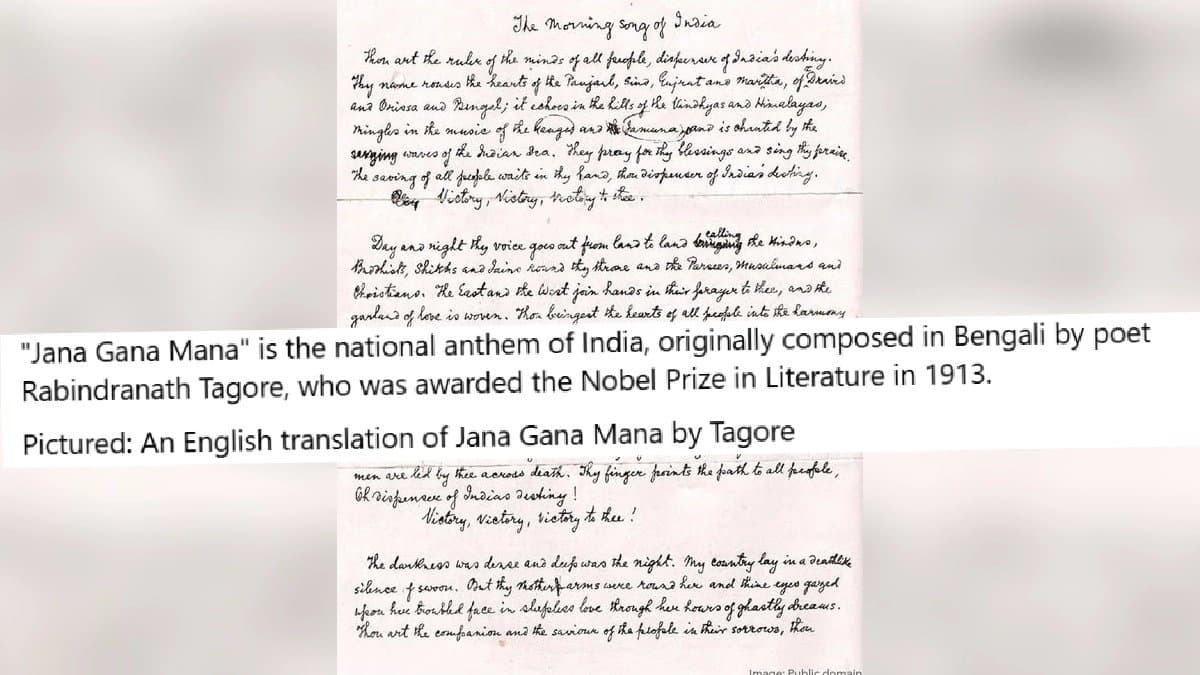 The Morning Song of India
Thou art the ruler of the minds of all people, dispenser of India's destiny.
Thy name rouses the hearts of the Panjaub, Sind, Gujrat and Maratta, of Dravid
and Orissa and Bengal; it echoes in the hills of the Vindhyas and Himalayas,
mingles in the music of the Ganges and Jamuna, and is chanted by the
surging waves of the Indian Sea. They pray for thy blessings and sing thy praise.
The saving of all people waits in thy hand, thou dispenser of India's destiny.
Victory, Victory, Victory to thee.
Day and night thy voice goes out from land to land calling the Hindus,
Budhists, Shikhs and Jains round thy throne and the Parsees, Musulmans and
Christians. The East and the West join hands in their prayer to thee, and the
garland of love is woven. Thou bringest the hearts of all people into the harmony
"Jana Gana Mana" is the national anthem of India, originally composed in Bengali by poet
Rabindranath Tagore, who was awarded the Nobel Prize in Literature in 1913.
Pictured: An English translation of Jana Gana Mana by Tagore
men are led by thee across death. Thy finger points the path to all people,
Oh dispenser of India's destiny!
Victory, Victory, Victory to thee!
The darkness was dense and deep was the night. My country lay in a deathlike
silence of swoon. But thy mother arms were round her and thine eyes gazed
upon her troubled face in sleepless love through her hours of ghastly dreams.
Thou art the companion and the saviour of the people in their sorrows, thou
Image: Public domain